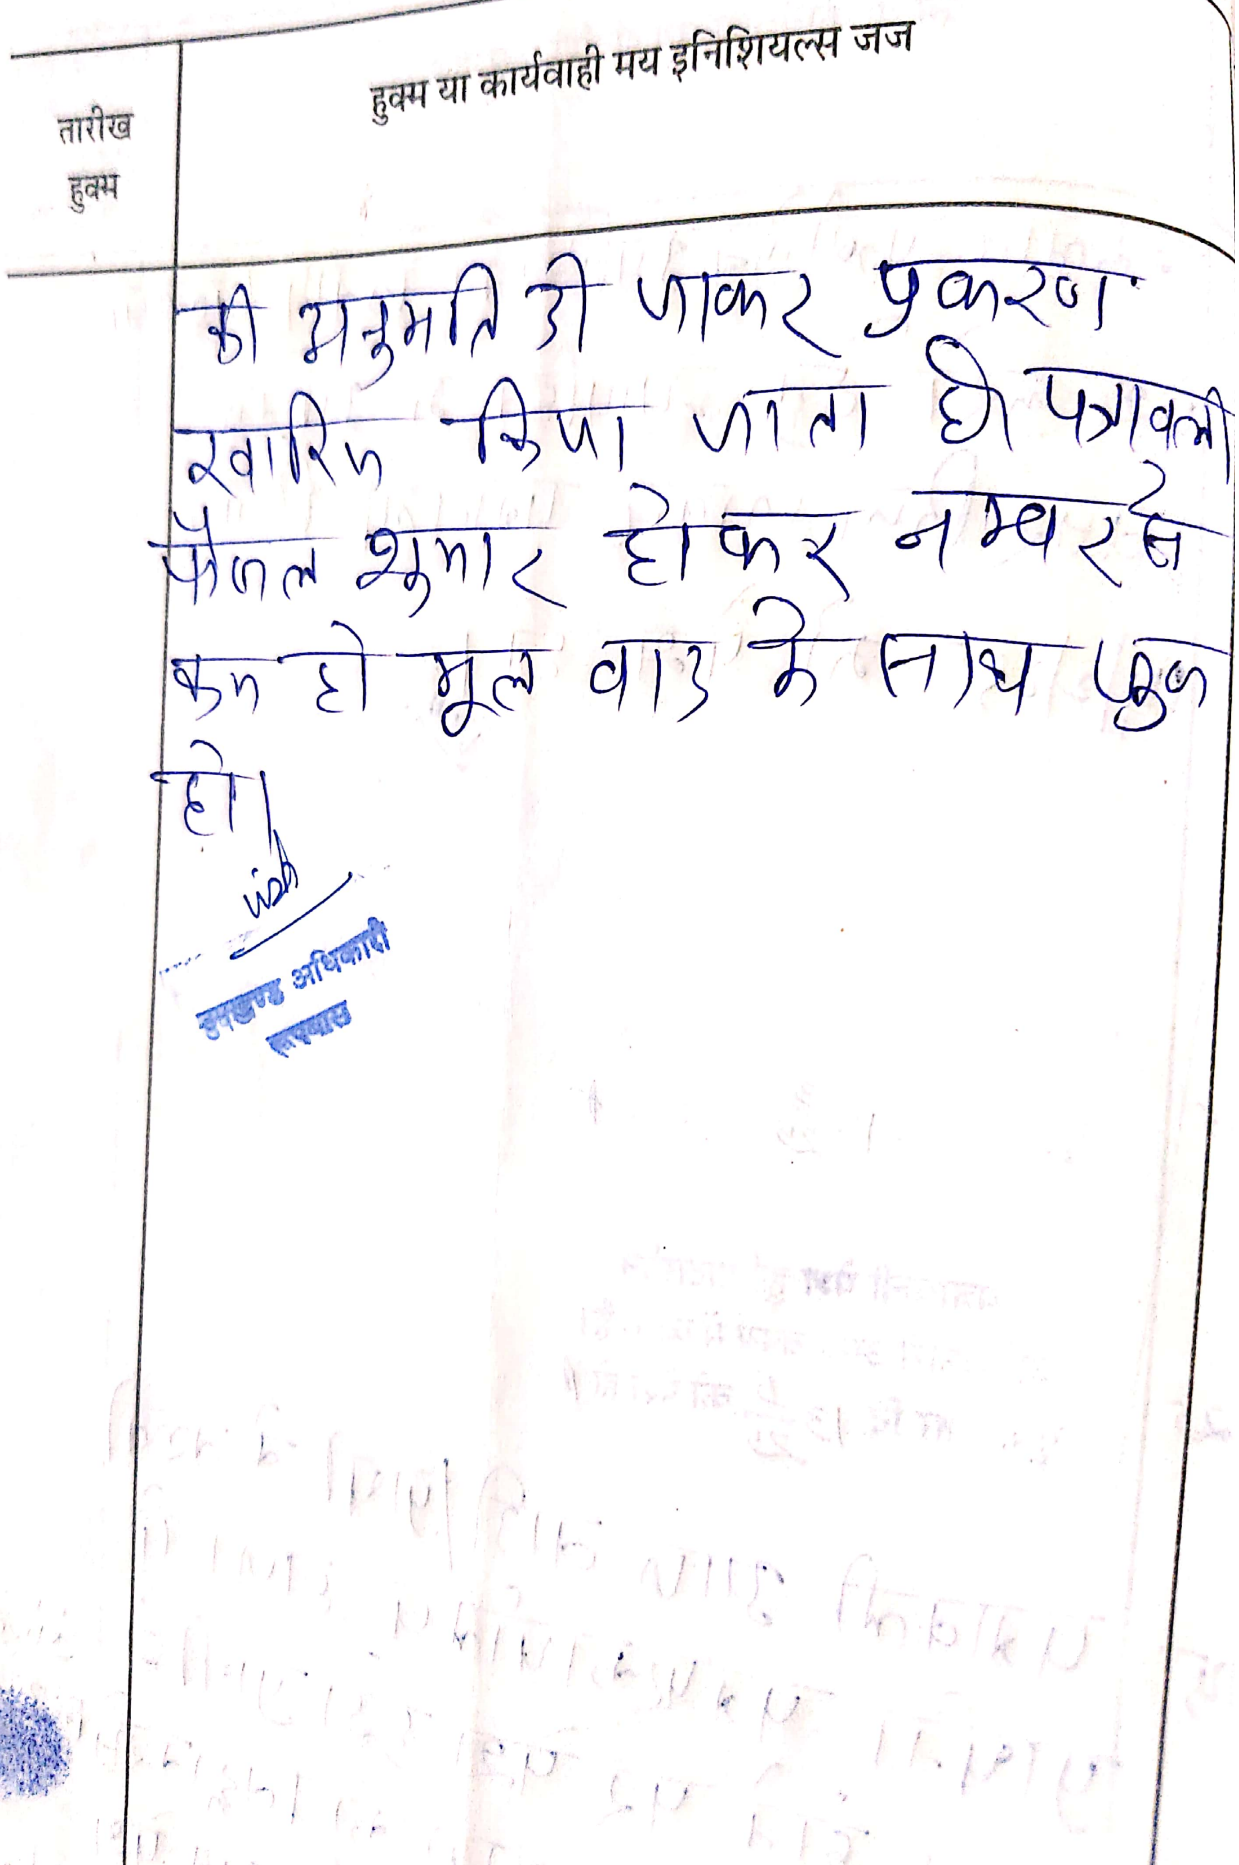 हुक्म या कार्यवाही मय इनिशियल्स जज
तारीख
हुक्म
की अनुमति दी जाकर प्रकरण
खारिज किया जाता है। पत्रावली
फैसल शुमार होकर नम्बर से
कम हो मूल वाद के साथ
हो।
उपखण्ड अधिकारी
रूपवास